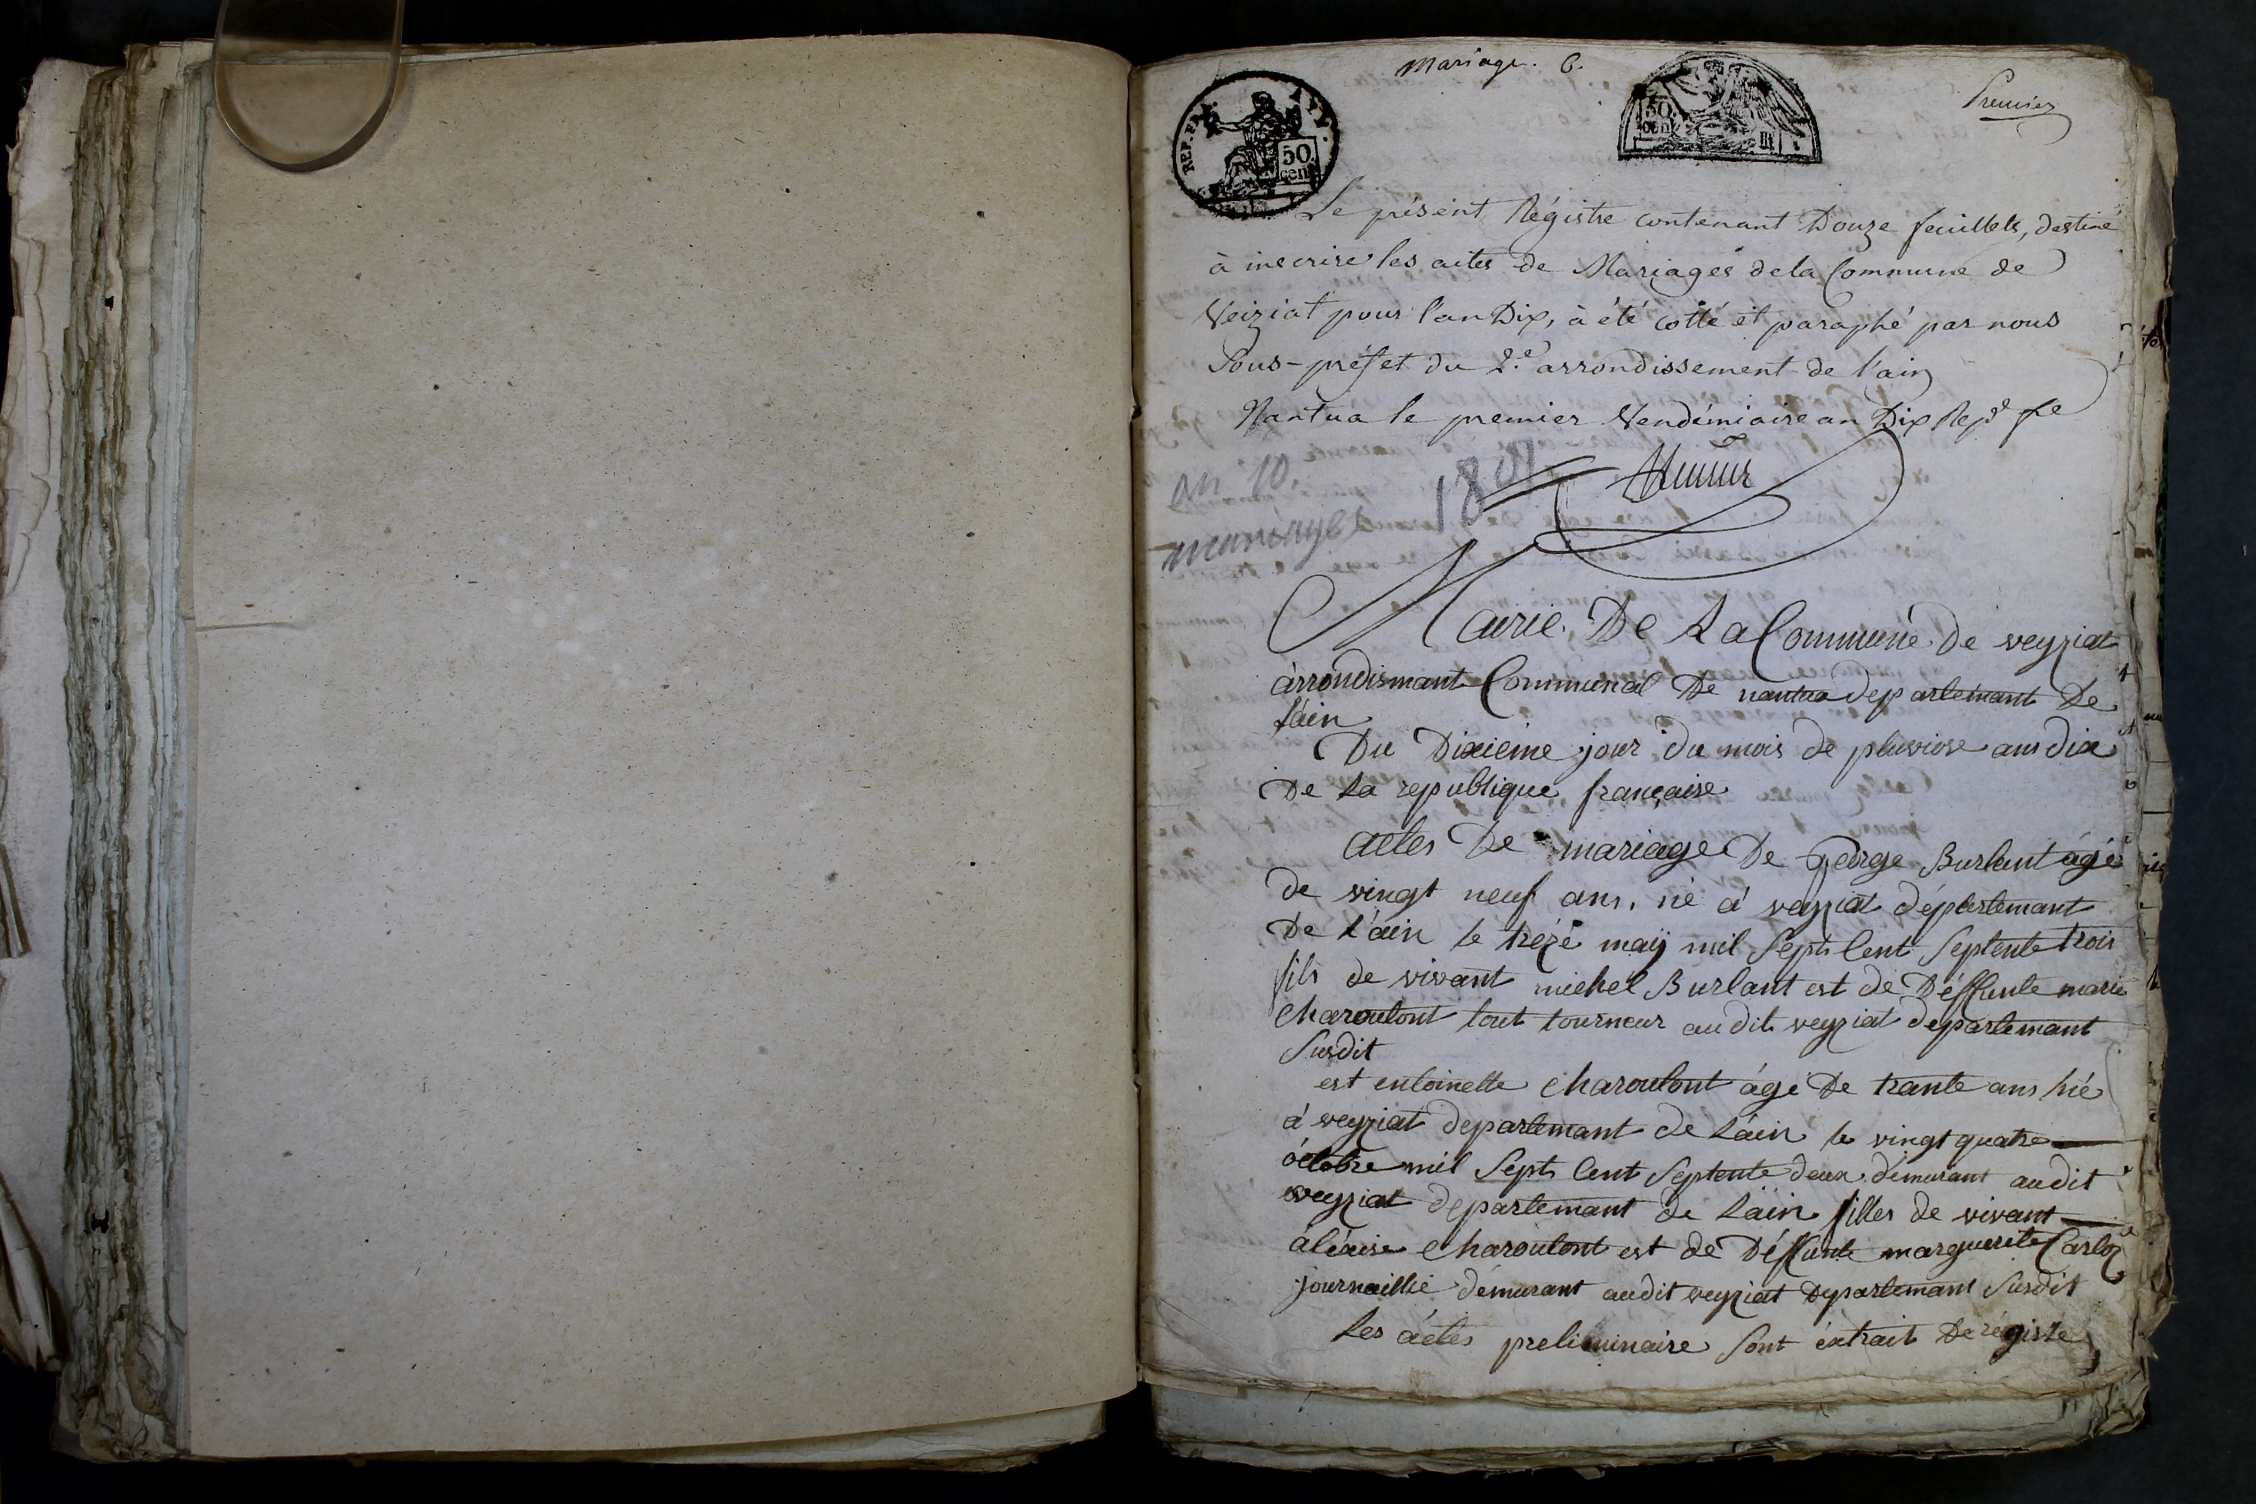 Mariage. 6.
Premier
REP. FRA.
50
cen
50
cen
Le présent Régistre contenant Douze feuillets, destiné
à inscrire les actes de Mariages de la Commune de
Veiziat pour l'an Dix, à été cotté et paraphé par nous
Sous-préfet du 2.e arrondissement de l'ain
Nantua le premier Vendémiaire an Dix Rep.
an 10. 1801
mariages
Mairie De La Commune De veyziat
àrrondismant Communal De nantua departemant De
Láin
Du Dixieme jour du mois de pluviose ans dix
De La republique française
actes De mariage De George Burlant ágé
de vingt neuf ans. né á veyziat départemant
De L'áin le trézé maÿ mil Sept Cent Septente trois
fils de vivant michel Burlant est de Déffunte marie
Charoulont tout tourneur au dit veyziat departemant
Susdit
est entoinette Charoulont ágé De trante ans né
á veyziat departemant de Láin le vingt quatre
óctobre mil Sept Cent Septente deux démurant audit
veyziat departemant de Láin filles de vivant
áléxise Charoulont est de Déffunte marguerite Carloz
journaillié démurant audit veyziat Departemant Susdit
Les áctes preliminaire Sont éxtrait De régistre